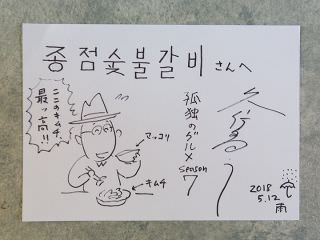 종점숯불갈비さんへ
ここのキムチ
最ッ高!!
マッコリ
キムチ
孤独のグルメ
season
7
2018
5.12
雨